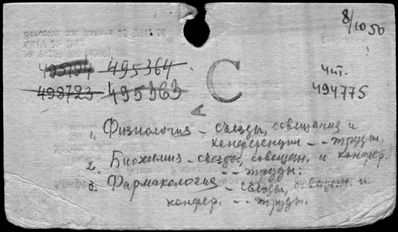 8/10 50
495194 495364
498723 495363
С
Чит.
494775
А
1. Физиология - съезды, совещания и
конференции -- труды.
2. Биохимия - съезды, совещ. и конфер.
-- труды.
3. Фармакология - съезды, совещ. и
конфер. -- труды.